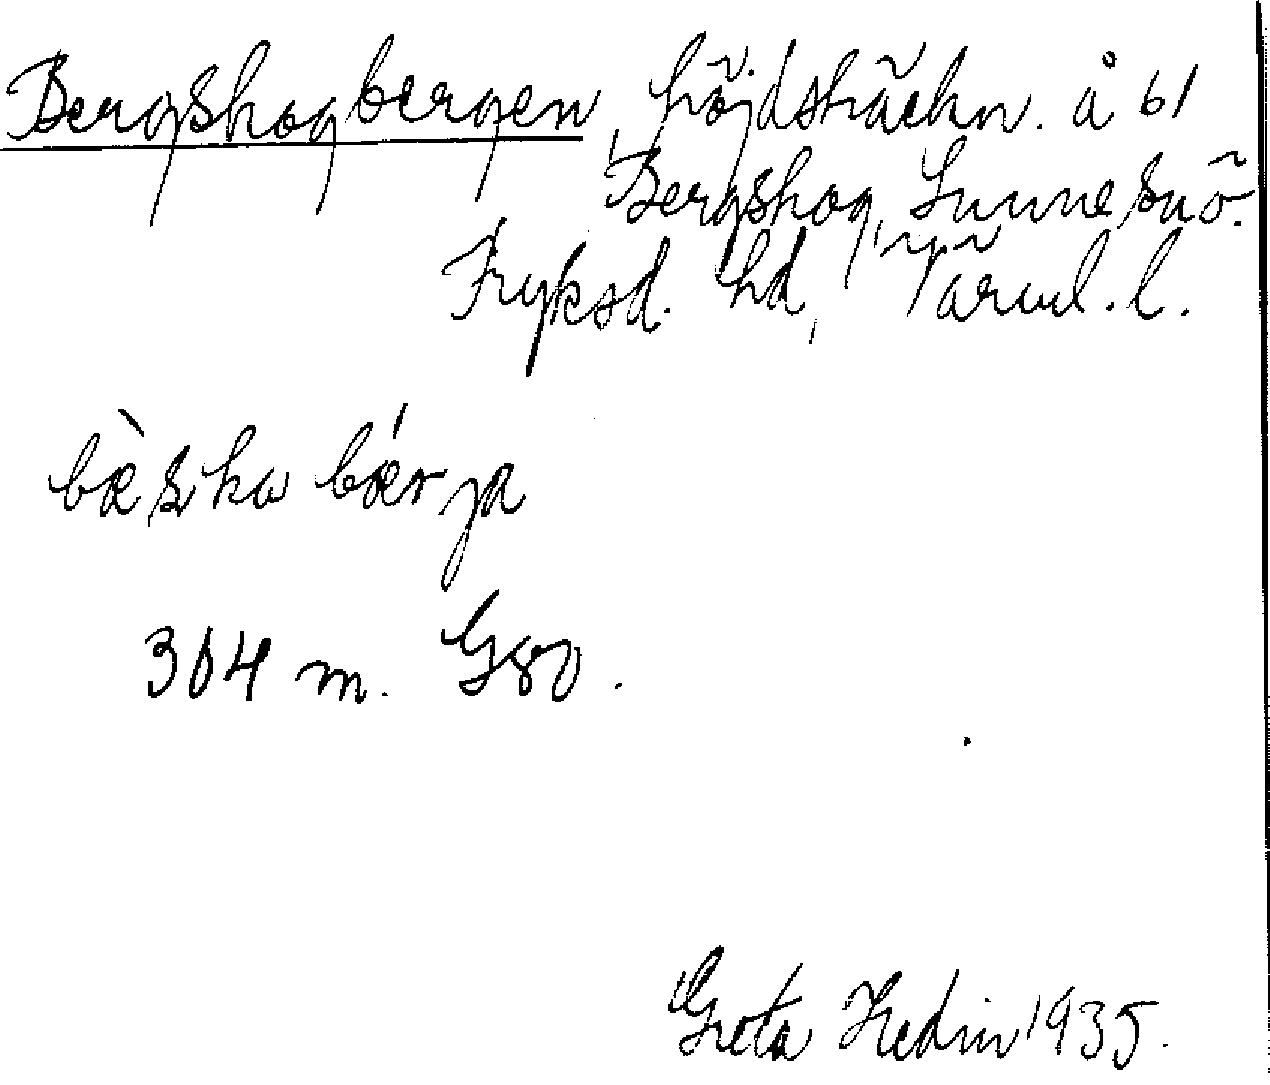 Bergskogbergen, höjdsträckn. å 61
Bergskog, Sunne snö.
Fryksd. hd, Värml. l.
bæ̀ska bǽrja
304 m. G80.
Greta Hedin 1935.